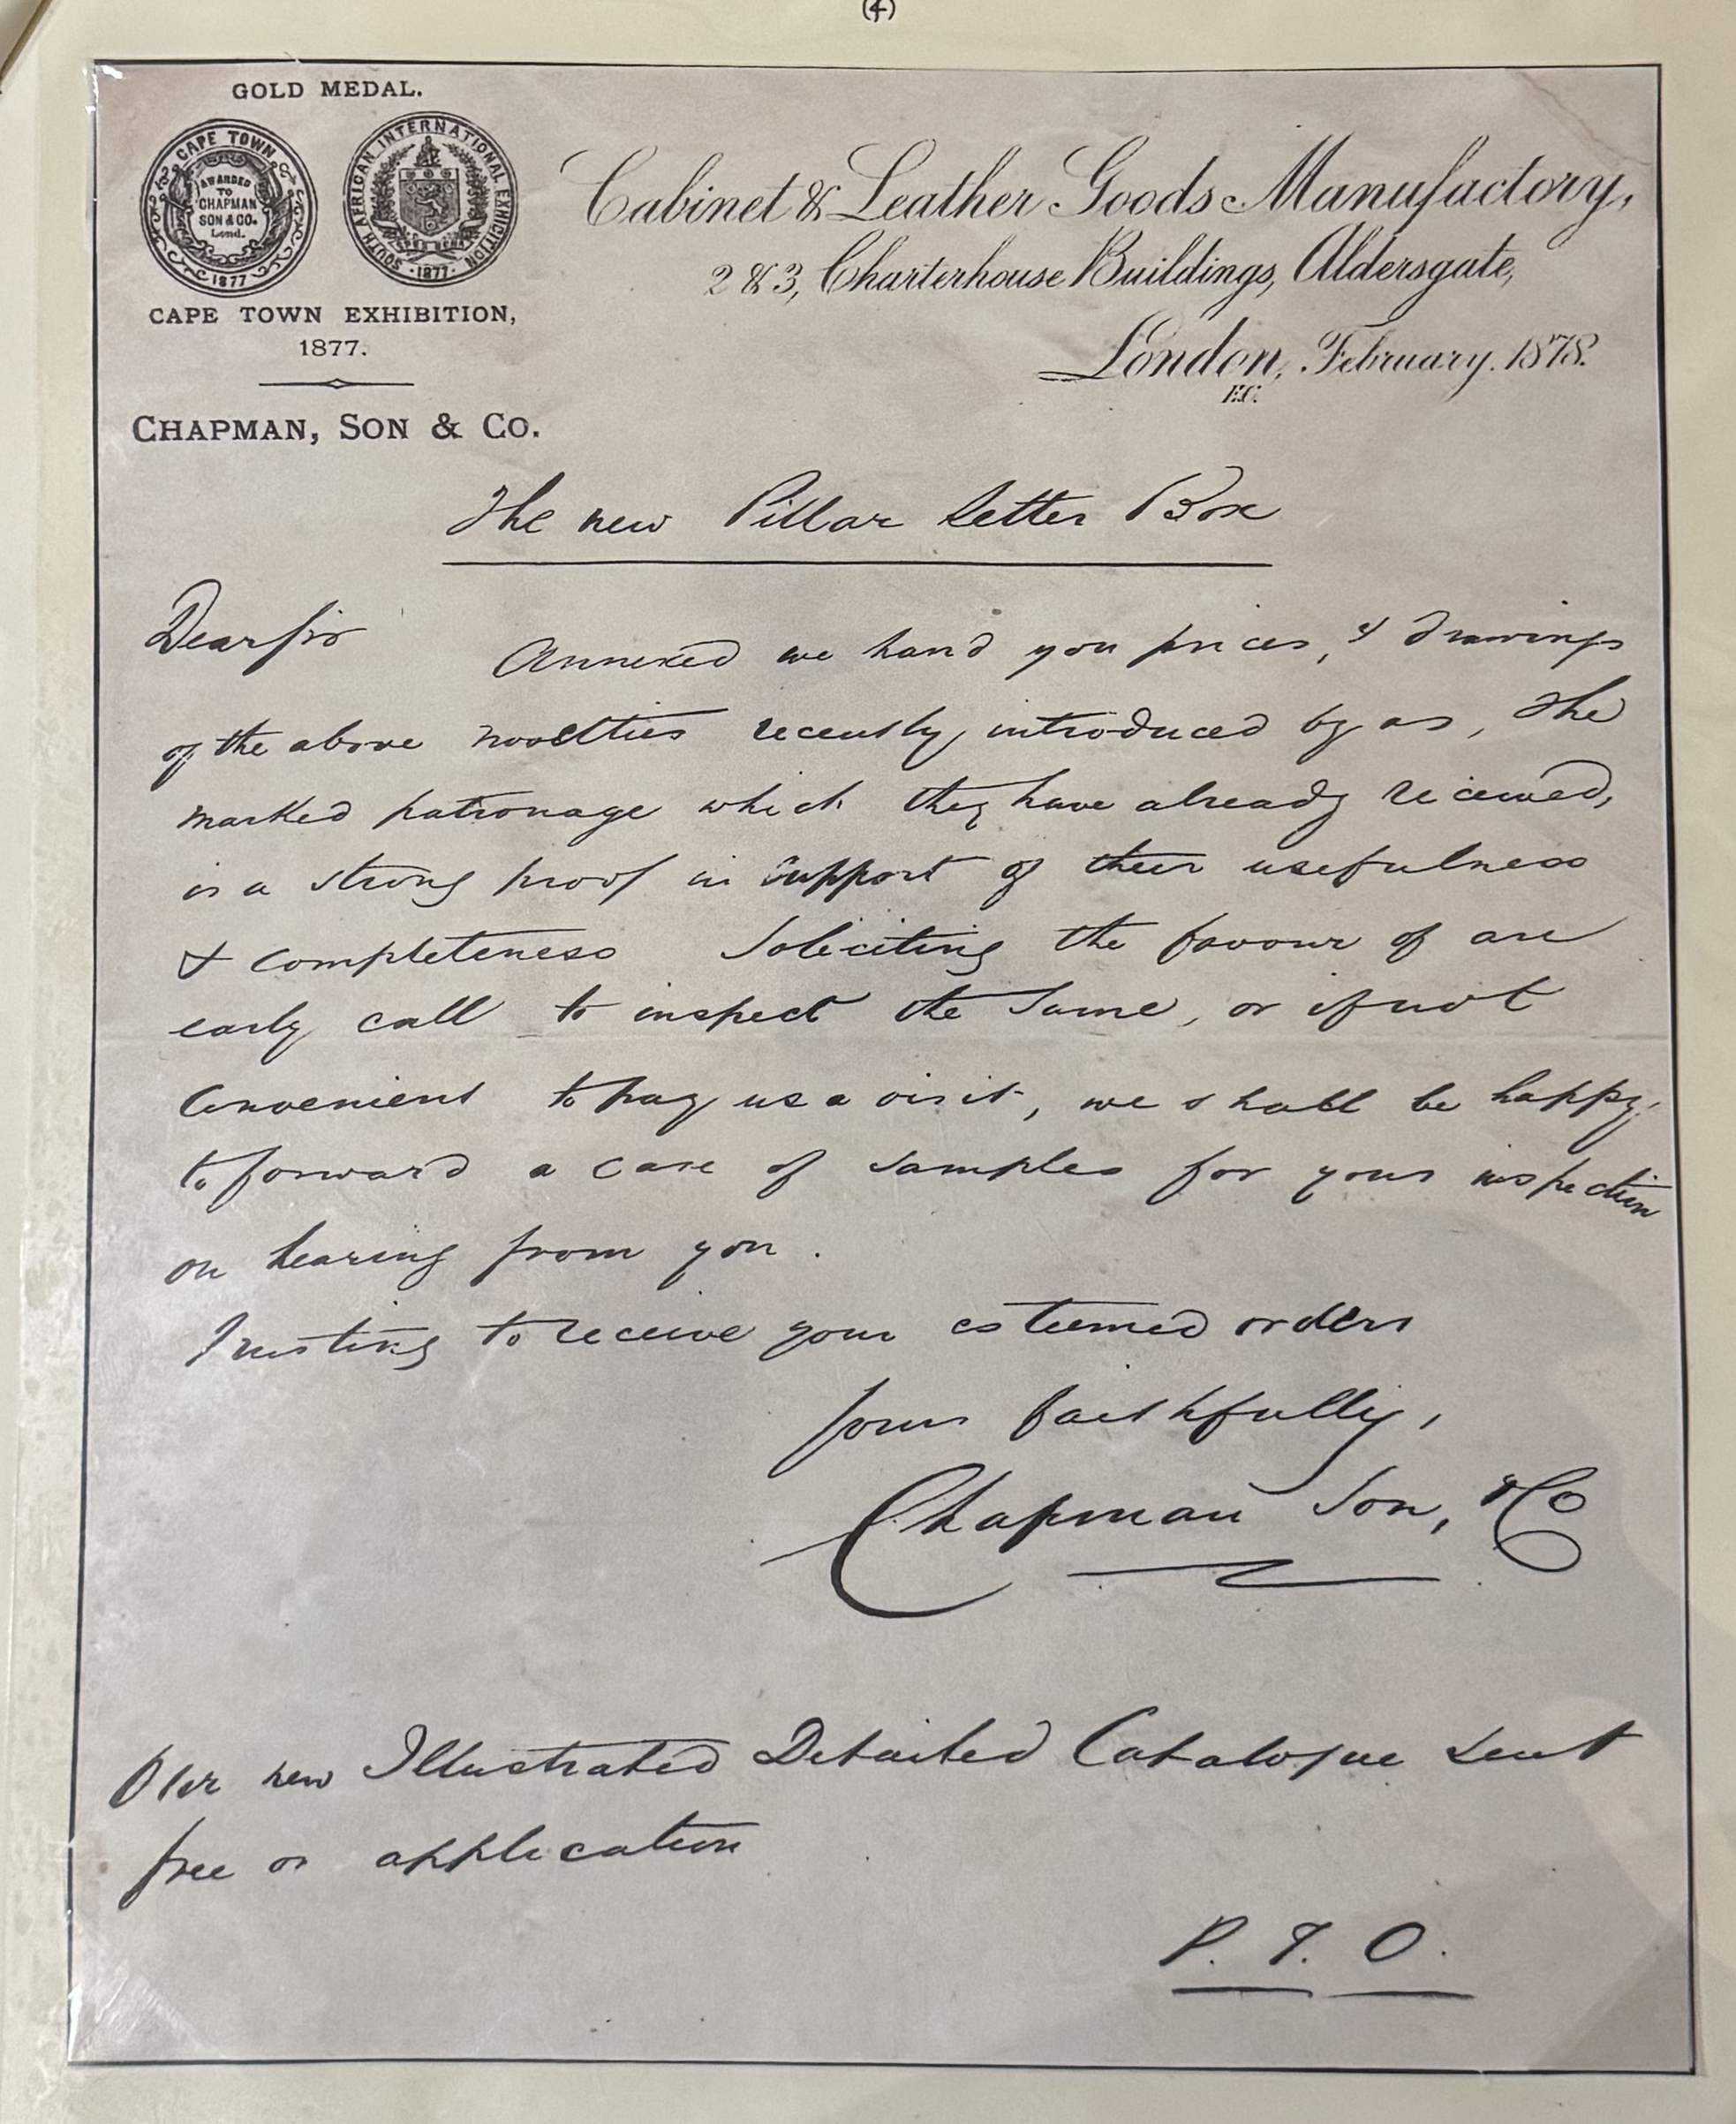 (4)
GOLD MEDAL.
CAPE TOWN
AWARDED
TO
CHAPMAN
SON & CO.
Lond.
1877
SOUTH AFRICAN INTERNATIONAL EXHIBITION
1877
CAPE TOWN EXHIBITION,
1877.
CHAPMAN, SON & CO.
Cabinet & Leather Goods Manufactory,
2 & 3, Charterhouse Buildings, Aldersgate,
London, February. 1878.
E.C.
The new Pillar Letter Box
Dear Sir
Annexed we hand you prices, & drawings
of the above novelties recently introduced by us, The
marked patronage which they have already received,
is a strong proof in support of their usefulness
& completeness Soliciting the favour of an
early call to inspect the same, or if not
Convenient to pay us a visit, we shall be happy,
to forward a case of samples for your inspection
on hearing from you.
Trusting to receive your esteemed orders
Yours faithfully,
Chapman Son, & Co
Our new Illustrated Detailed Catalogue sent
free on application
P. T. O.